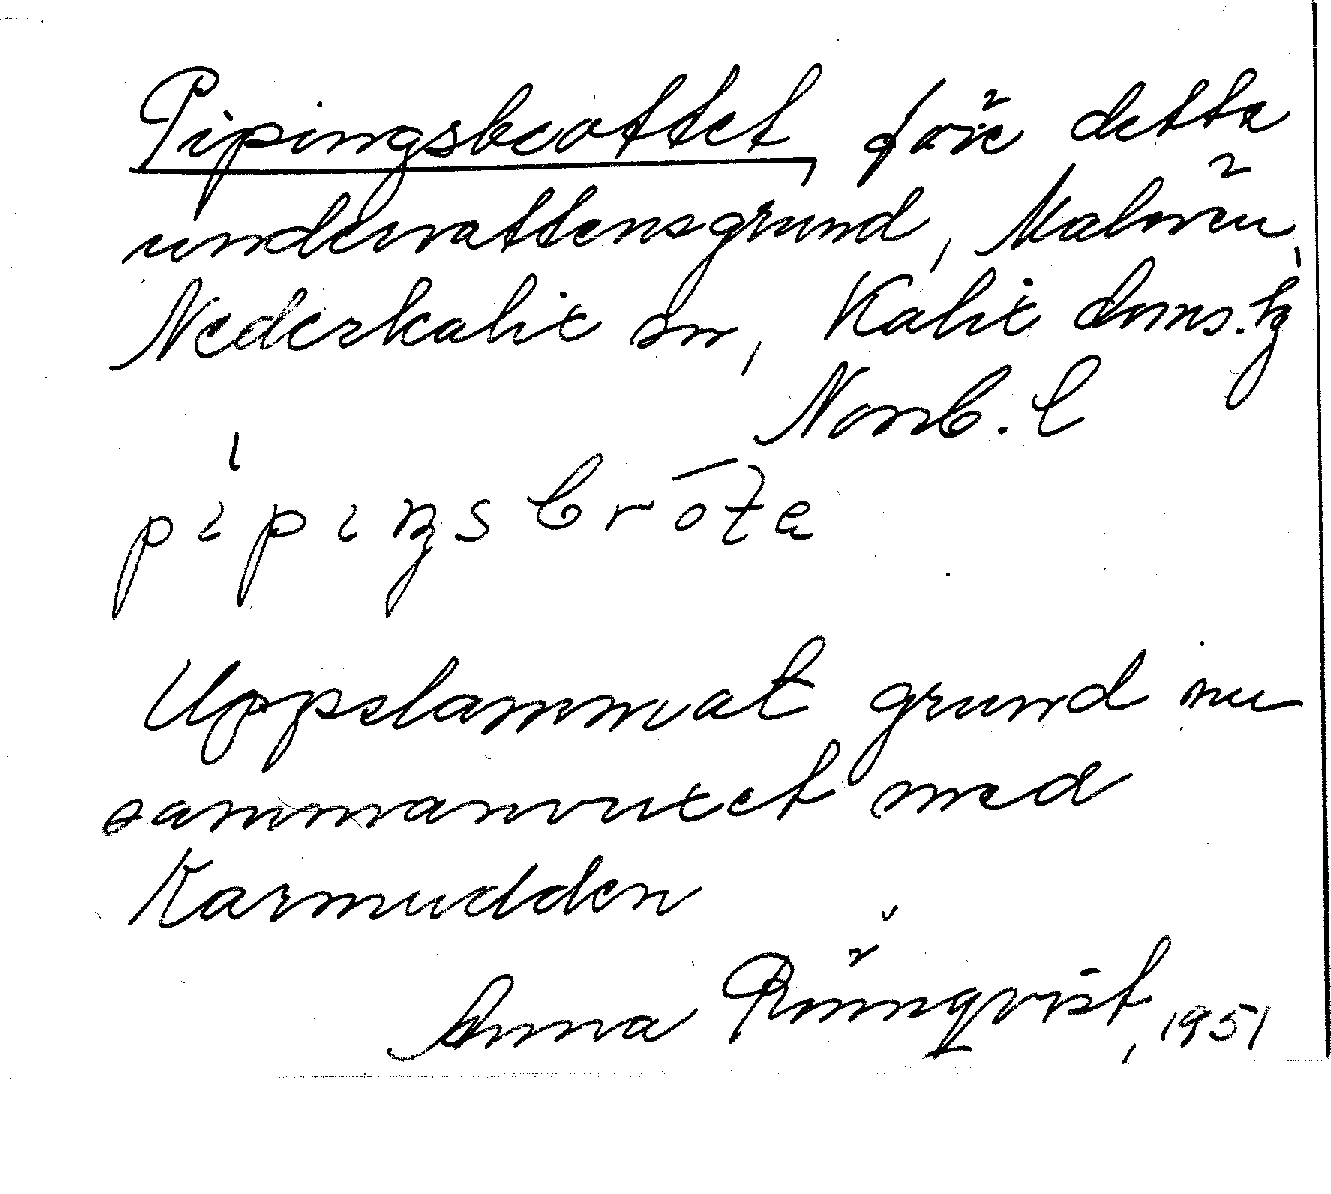 Pipingsbrottet, före detta
undervattensgrund, Malören,
Nederkalix sn, Kalix doms.
Norrb. l
pipiŋsbrōtə
Uppslammat grund nu
sammanvuxet med
Karmudden
Anna Rönnqvist, 1951